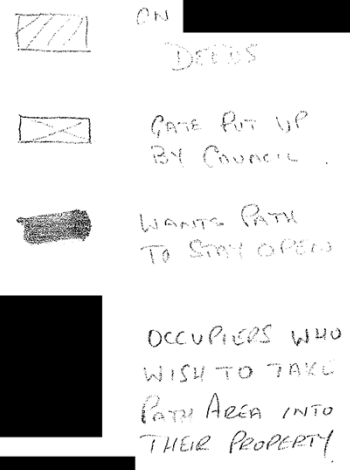 ON
DEEDS
GATE PUT UP
BY COUNCIL.
WANTS PATH
TO STAY OPEN
OCCUPIERS WHO
WISH TO TAKE
PATH AREA INTO
THEIR PROPERTY